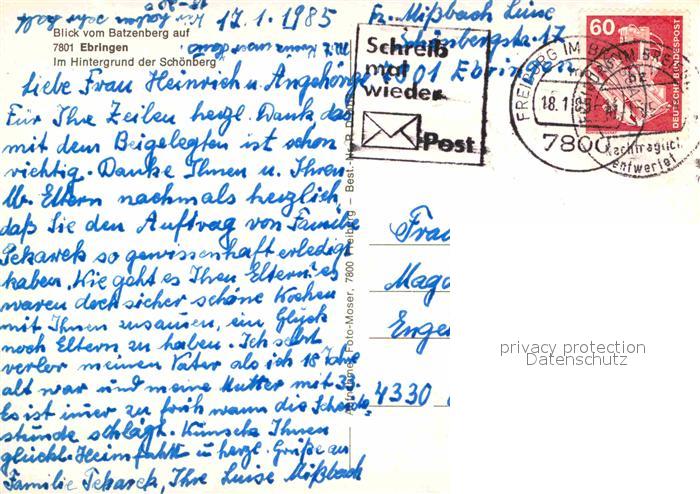 17.1.1985
Blick vom Batzenberg auf
7801 Ebringen
Im Hintergrund der Schönberg
Liebe Frau Heinrich u. Angehörige
Für Ihre Zeilen herzl. Dank das
mit dem Beigelegten ist schon
richtig. Danke Ihnen u. Ihren
lb. Eltern nachmals herzlich
daß Sie den Auftrag von Familie
Pekarek so gewissenhaft erledigt
haben. Wie geht es Ihren Eltern? es
waren doch sicher schöne Wochen
mit Ihnen zusammen, ein Glück
noch Eltern zu haben. Ich selbst
verlor meinen Vater als ich 18 Jahre
alt war und meine Mutter mit 33.
Es ist immer zu früh wann die
stunde schlägt. Wünsche Ihnen
glückl. Heimfahrt u. herzl. Grüße an
Familie Pekarek, Ihre Luise Mißbach
Foto-Moser, 7800 Freiburg – Best. Nr.
Fr. Mißbach Luise
17
7801 Ebringen
Schreib
mal
wieder
Post
60
DEUTSCHE BUNDESPOST
FREIBURG IM BREISGAU
18.1.85
7800
Nachträglich
entwertet
Frau
Magd
Enge
4330
privacy protection
Datenschutz